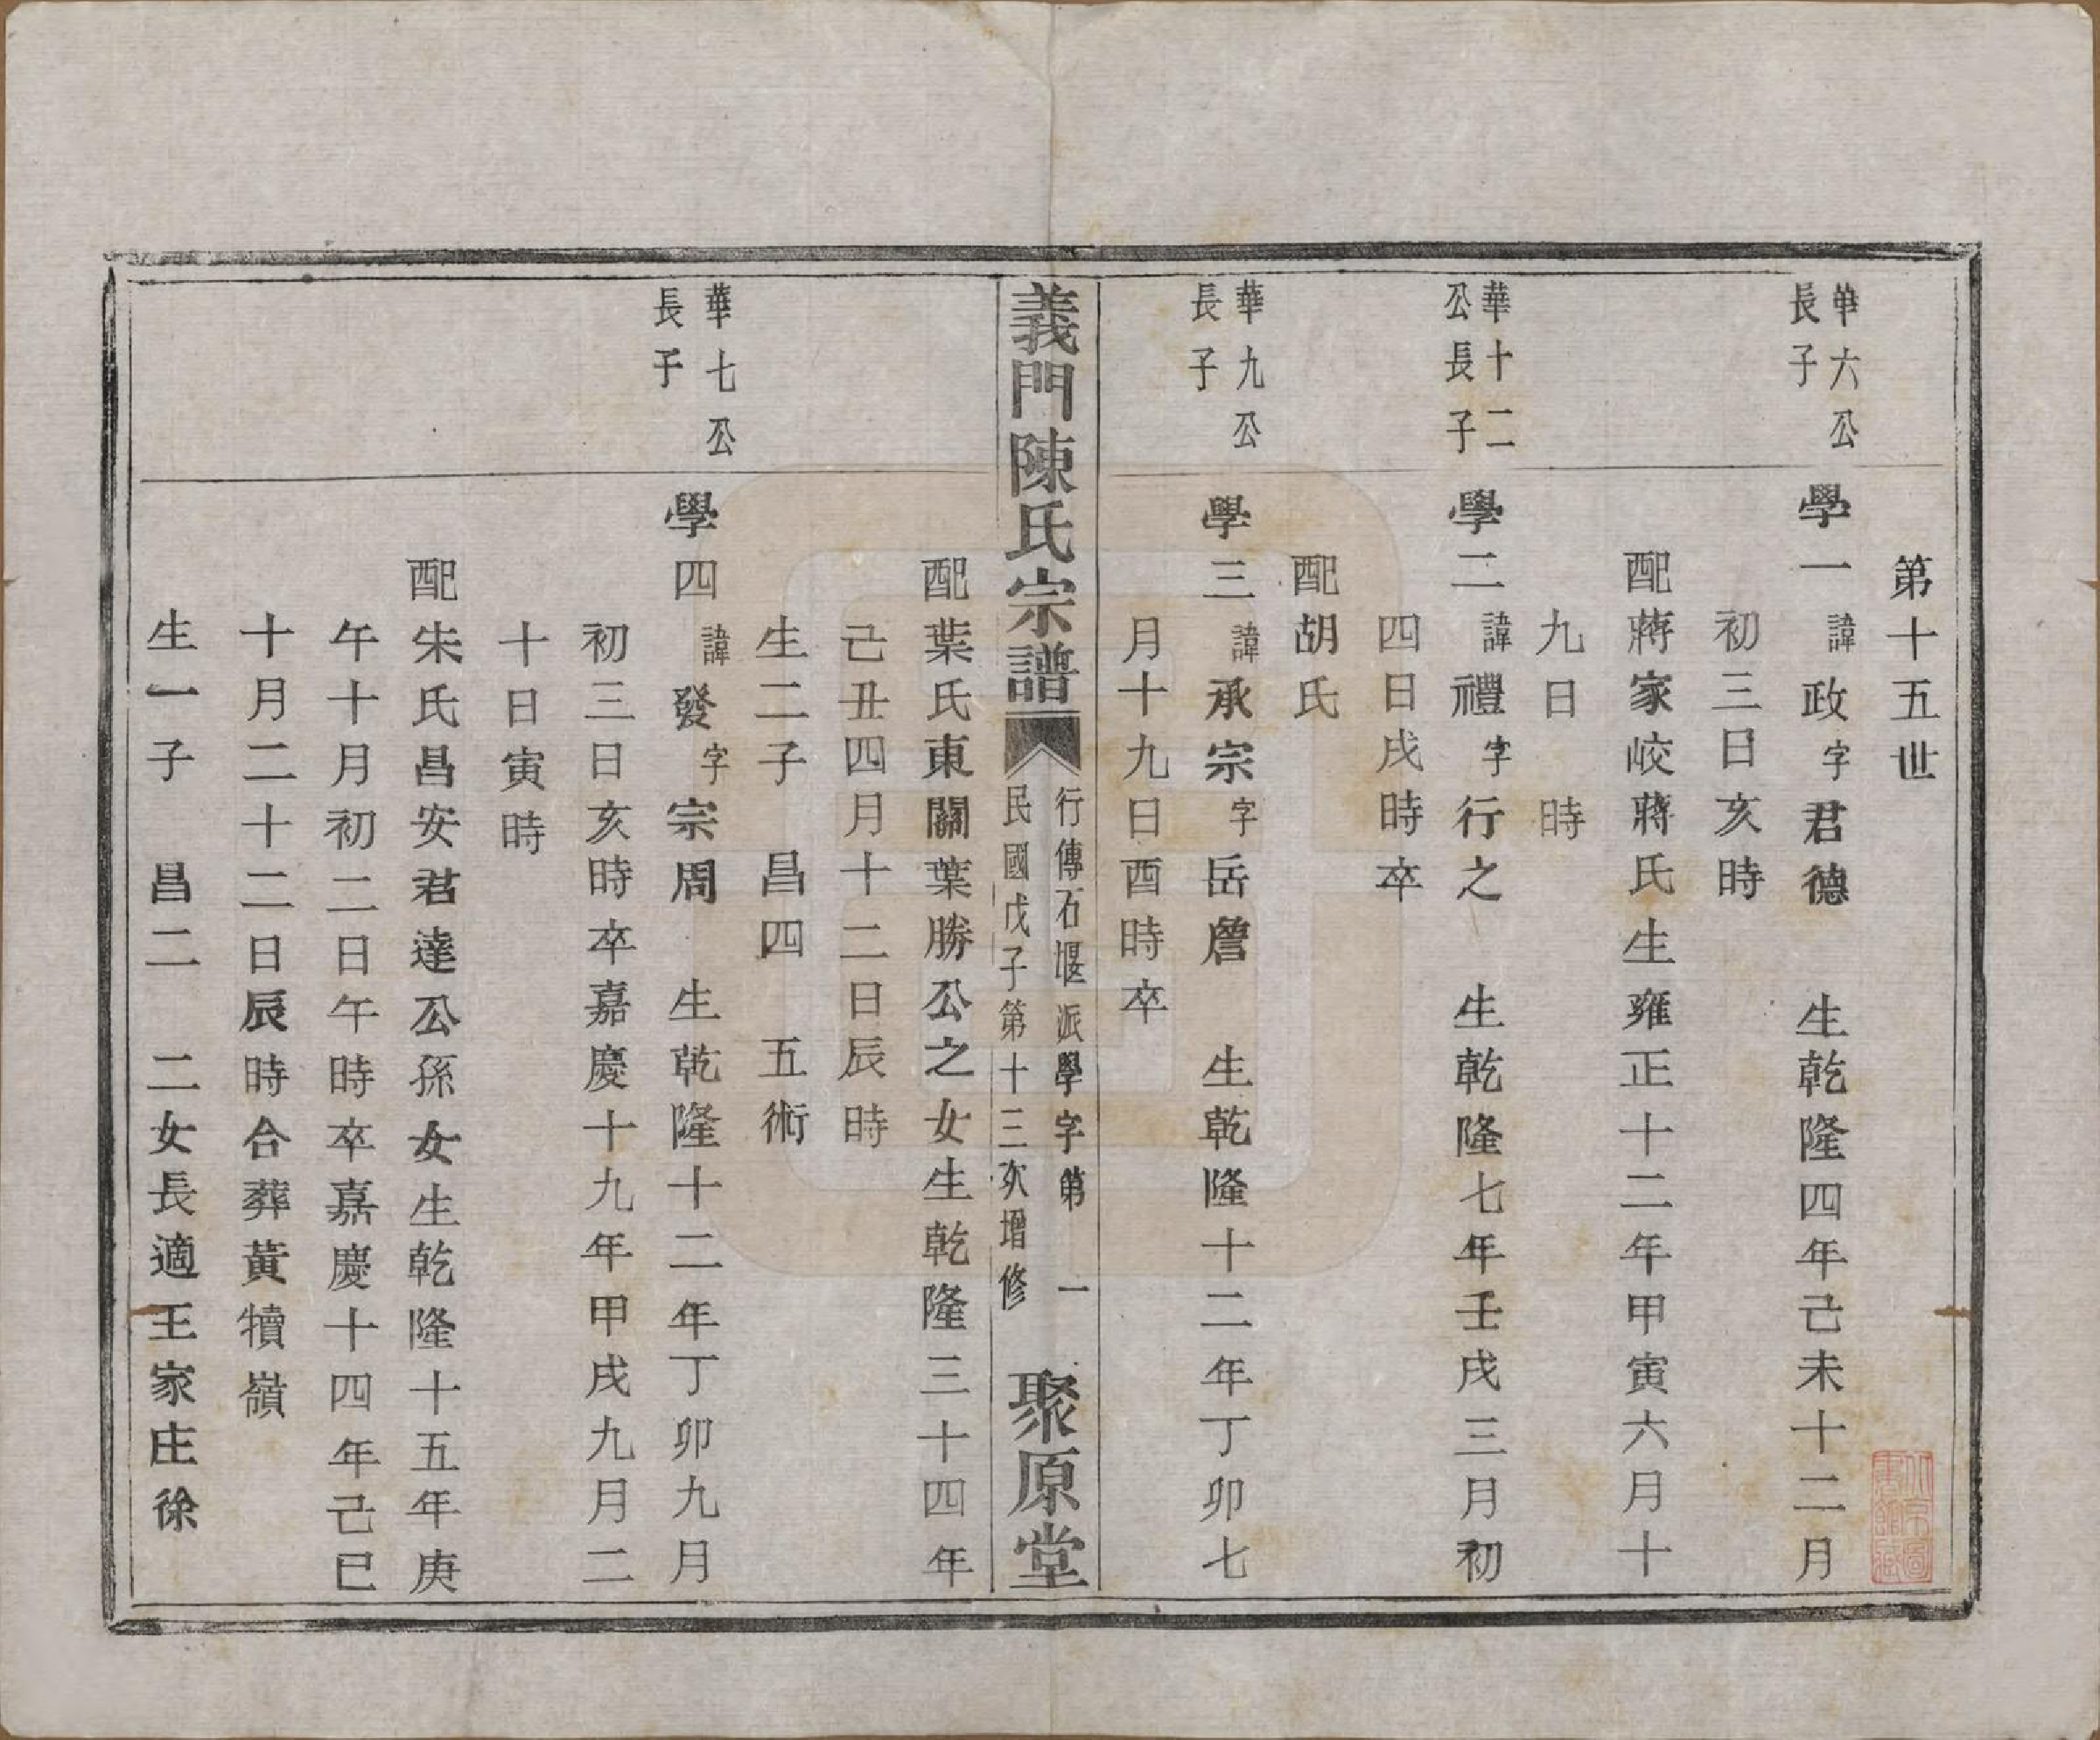 第十五世
華六公
長子
學一諱政字君德　生乾隆四年己未十二月
初三日亥時
配蔣家峧蔣氏生雍正十二年甲寅六月十
九日　時
華十二
公長子
學二諱禮字行之　生乾隆七年壬戌三月初
四日戌時卒
配胡氏
華九公
長子
學三諱承宗字岳詹　生乾隆十二年丁卯七
月十九日酉時卒
義門陳氏宗譜
行傳石堰派學字第　一
民國戊子第十三次增修
聚原堂
配葉氏東關葉勝公之女生乾隆三十四年
己丑四月十二日辰時
生二子　昌四　五術
華七公
長子
學四諱發字宗周　生乾隆十二年丁卯九月
初三日亥時卒嘉慶十九年甲戌九月二
十日寅時
配朱氏昌安君達公孫女生乾隆十五年庚
午十月初二日午時卒嘉慶十四年己巳
十月二十二日辰時合葬黃犢嶺
生一子　昌二　二女長適王家庄徐